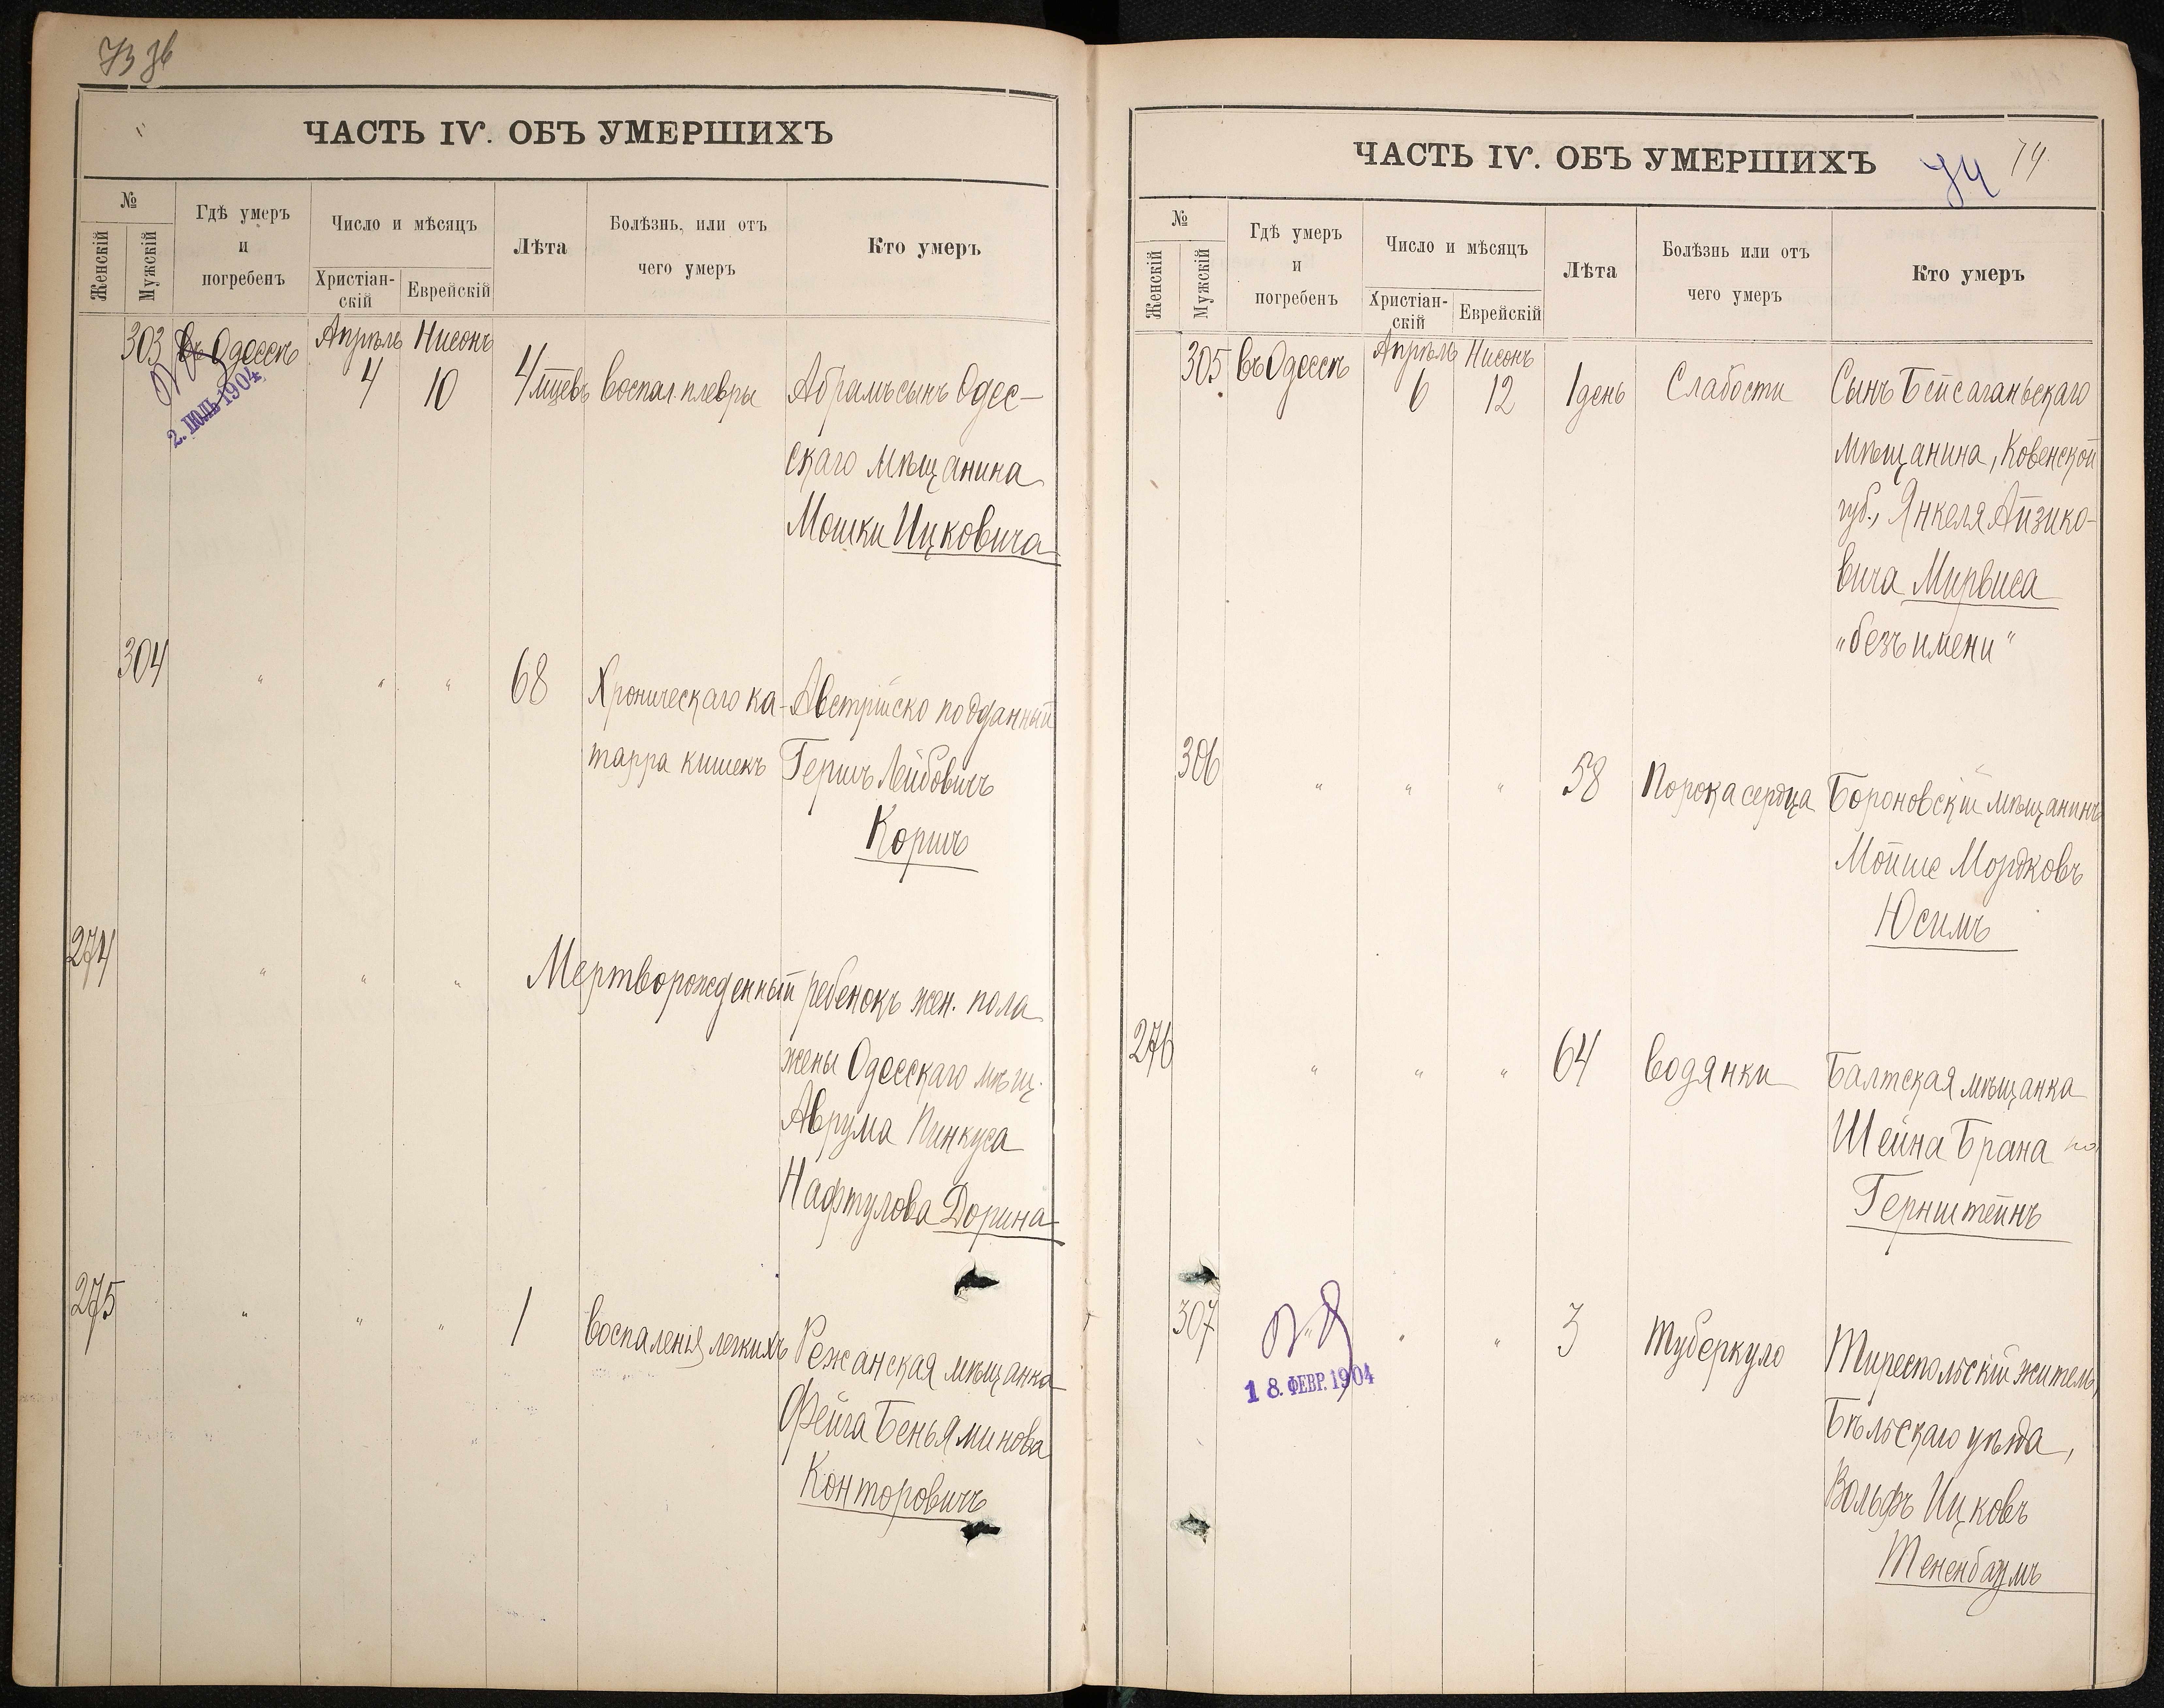 73 об
ЧАСТЬ IV. ОБЪ УМЕРШИХЪ
№
Женскій
Мужскій
Гдѣ умеръ
и
погребенъ
Число и мѣсяцъ
Христіан-
скій
Еврейскій
Лѣта
Болѣзнь, или отъ
чего умеръ
Кто умеръ
303 въ Одессѣ Апрѣль Нисонъ
4 10 4 мцевъ воспал. плевры Абрамъ сынъ Одес-
2. ІЮЛЬ 1904
скаго мѣщанина
Мошки Ицковича
304 " " " 68 Хроническаго ка- Австрійско подданный
тарра кишекъ Гершъ Лейбовичъ
Коршъ
274 " " " Мертворожденный ребенокъ жен. пола
жены Одесскаго мѣщ.
Аврума Пинкуса
Нафтулова Дорина
275 " " " 1 воспаленія легкихъ Режанская мѣщанка
Фейга Беньяминова
Конторовичъ
ЧАСТЬ IV. ОБЪ УМЕРШИХЪ 74 74
№
Женскій
Мужскій
Гдѣ умеръ
и
погребенъ
Число и мѣсяцъ
Христіан-
скій
Еврейскій
Лѣта
Болѣзнь или отъ
чего умеръ
Кто умеръ
305 въ Одессѣ Апрѣль Нисонъ
6 12 1 день Слабости Сынъ Бейсаганьскаго
мѣщанина, Ковенской
губ., Янкеля Айзико-
вича Мирвиса
"безъ имени"
306 " " " 58 Порока сердца Бороновскій мѣщанинъ
Мойше Мордковъ
Юсимъ
276 " " " 64 водянки Балтская мѣщанка
Шейна Брана
Гернштейнъ
307 " " " 3 туберкуло Тиреспольскій житель,
18. ФЕВР. 1904
Бѣльскаго уѣзда,
Вольфъ Ицковъ
Тененбаумъ